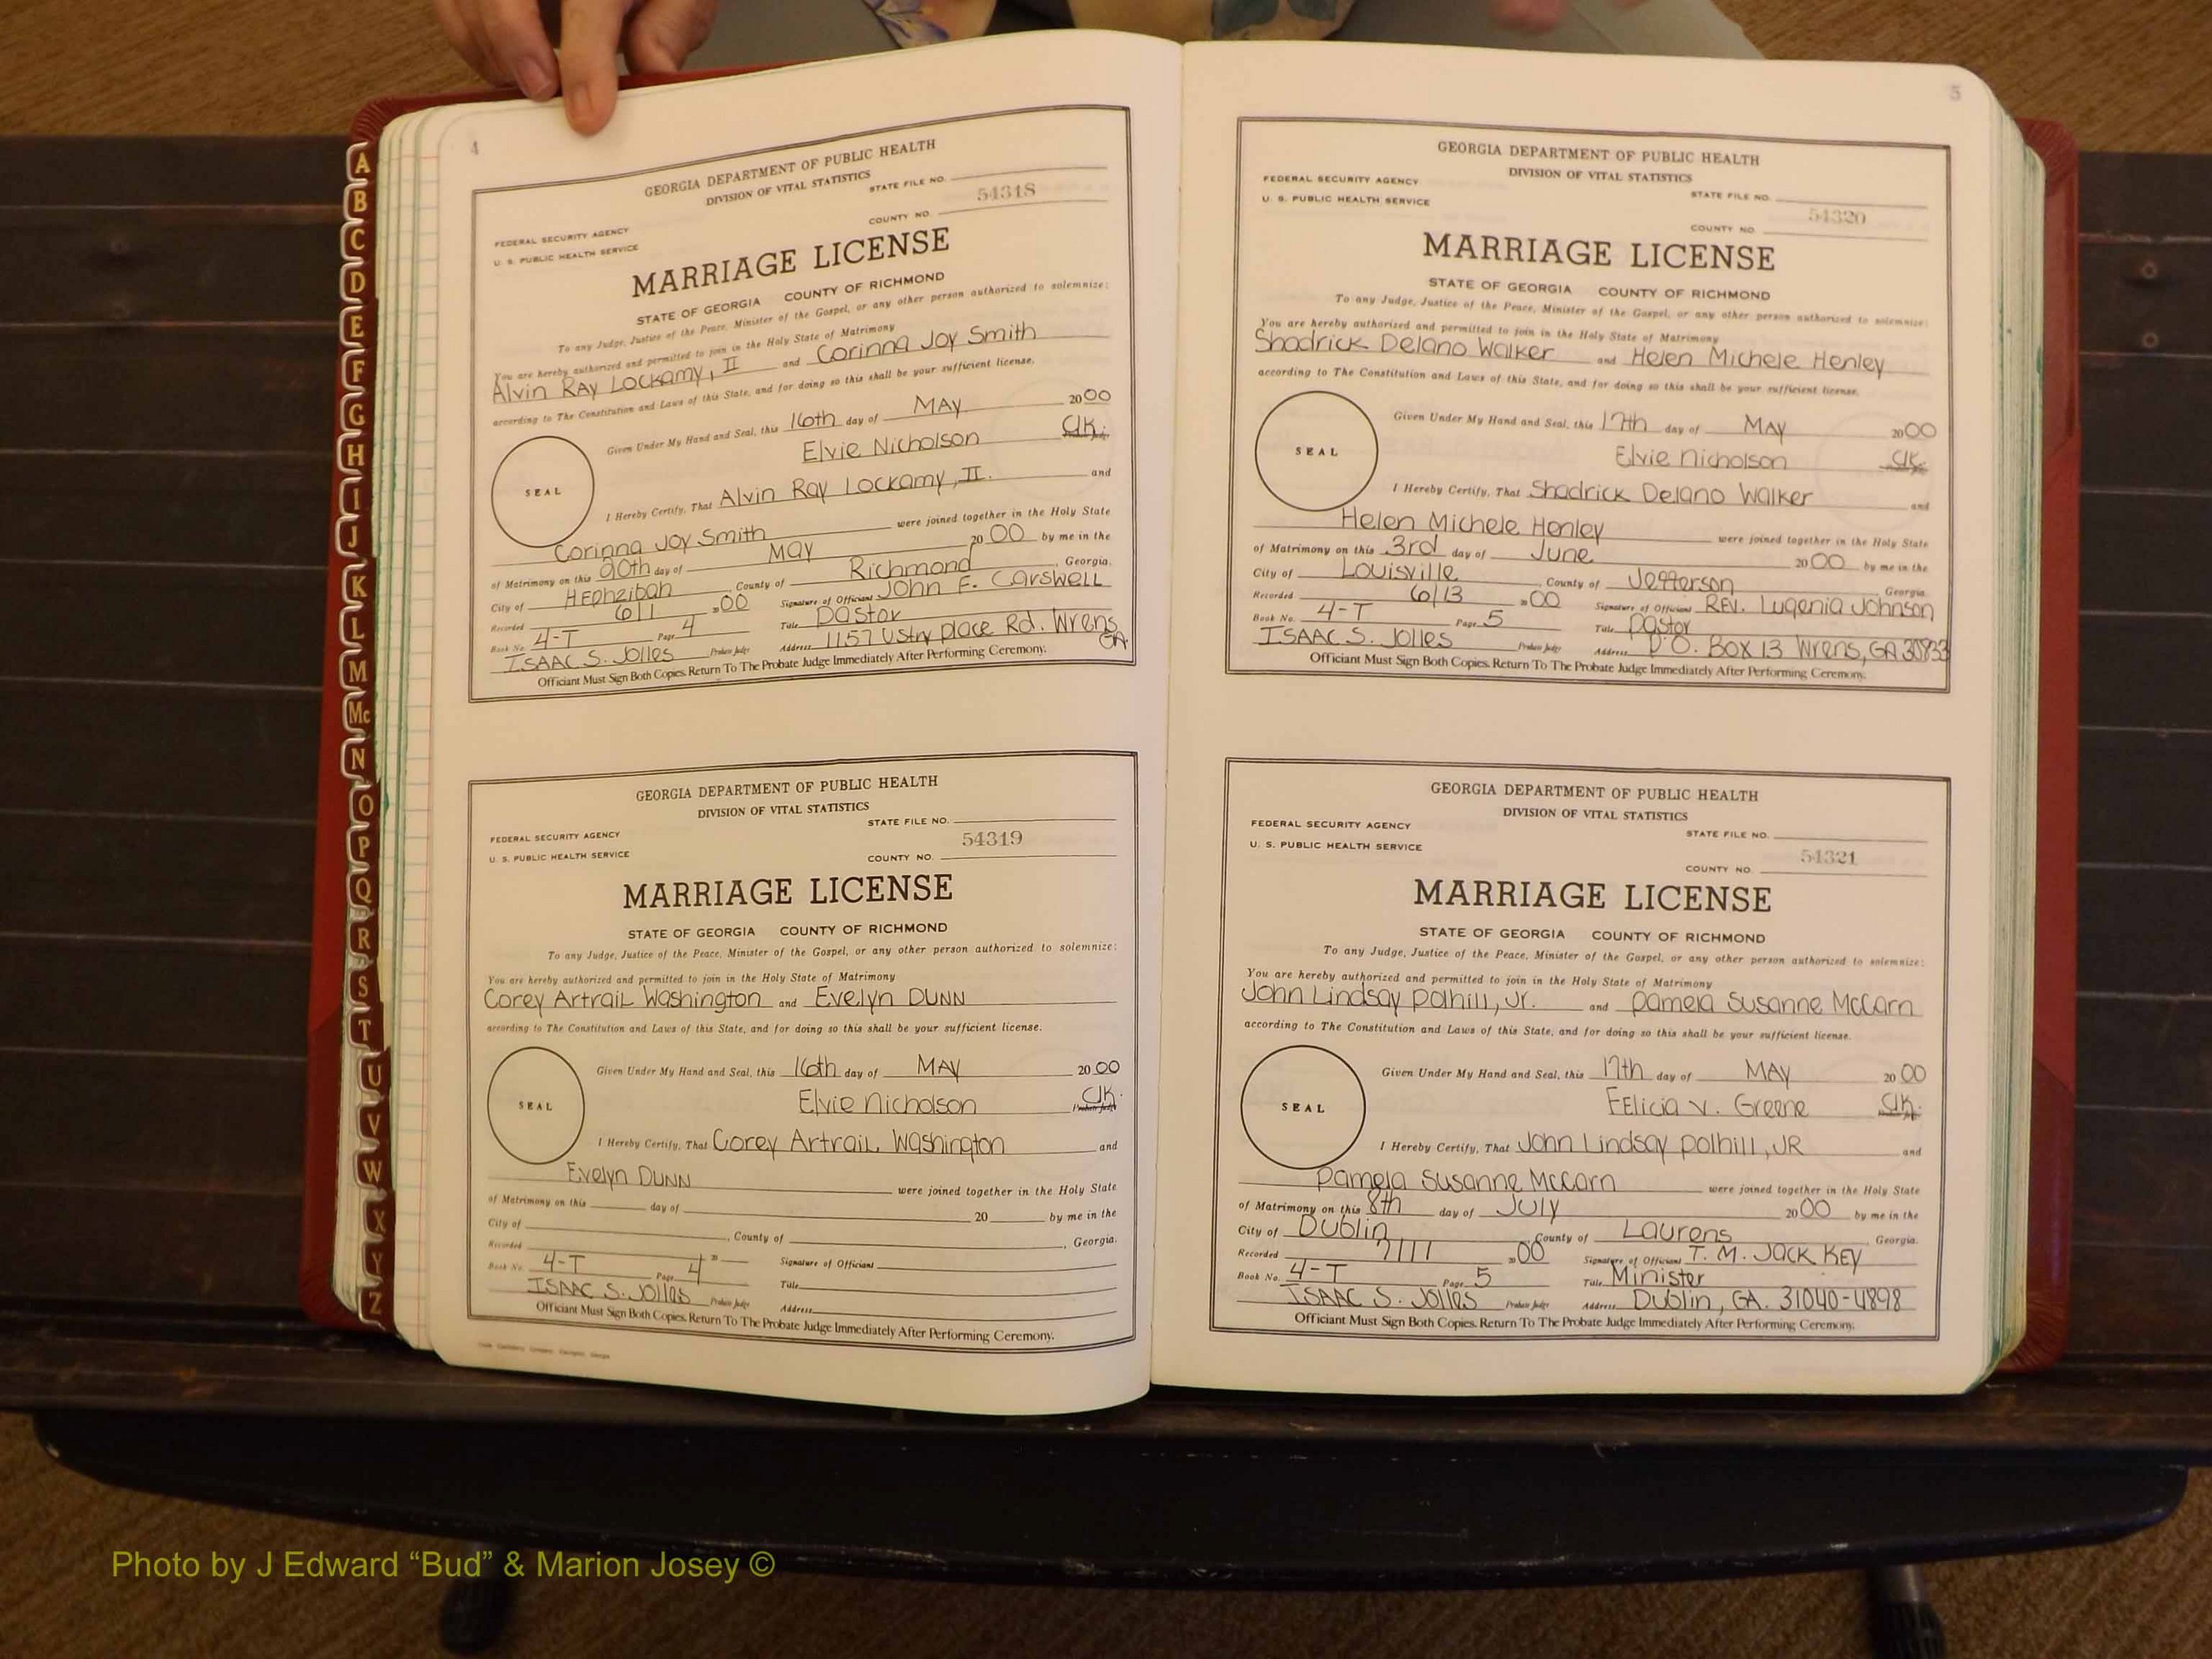 A
B
C
D
E
F
G
H
I
J
K
L
M
Mc
N
O
P
Q
R
S
T
U
V
W
X
Y
Z
4
GEORGIA DEPARTMENT OF PUBLIC HEALTH
DIVISION OF VITAL STATISTICS
STATE FILE NO.
54318
FEDERAL SECURITY AGENCY
U. S. PUBLIC HEALTH SERVICE
COUNTY NO.
MARRIAGE LICENSE
STATE OF GEORGIA COUNTY OF RICHMOND
To any Judge, Justice of the Peace, Minister of the Gospel, or any other person authorized to solemnize:
You are hereby authorized and permitted to join in the Holy State of Matrimony
Alvin Ray Lockamy, II and Corinna Joy Smith
according to The Constitution and Laws of this State, and for doing so this shall be your sufficient license.
Given Under My Hand and Seal, this 16th day of MAY 2000
Elvie Nicholson Clk.
SEAL
I Hereby Certify, That Alvin Ray Lockamy, II. and
Corinna Joy Smith were joined together in the Holy State
of Matrimony on this 20th day of May 20 00 by me in the
City of Hephzibah, County of Richmond, Georgia.
Recorded 6/1 2000 Signature of Officiant John F. Carswell
Book No. 4-T Page 4 Title Pastor
ISAAC S. Jolles Probate Judge Address 1157 Ustry Place Rd. Wrens GA.
Officiant Must Sign Both Copies. Return To The Probate Judge Immediately After Performing Ceremony.
GEORGIA DEPARTMENT OF PUBLIC HEALTH
DIVISION OF VITAL STATISTICS
STATE FILE NO.
54319
FEDERAL SECURITY AGENCY
U. S. PUBLIC HEALTH SERVICE
COUNTY NO.
MARRIAGE LICENSE
STATE OF GEORGIA COUNTY OF RICHMOND
To any Judge, Justice of the Peace, Minister of the Gospel, or any other person authorized to solemnize:
You are hereby authorized and permitted to join in the Holy State of Matrimony
Corey Artrail Washington and Evelyn DUNN
according to The Constitution and Laws of this State, and for doing so this shall be your sufficient license.
Given Under My Hand and Seal, this 16th day of MAY 20 00
Elvie Nicholson Clk.
SEAL
I Hereby Certify, That Corey Artrail Washington and
Evelyn DUNN were joined together in the Holy State
of Matrimony on this day of 20 by me in the
City of , County of , Georgia.
Recorded 20 Signature of Officiant
Book No. 4-T Page 4 Title
ISAAC S. Jolles Probate Judge Address
Officiant Must Sign Both Copies. Return To The Probate Judge Immediately After Performing Ceremony.
5
GEORGIA DEPARTMENT OF PUBLIC HEALTH
DIVISION OF VITAL STATISTICS
FEDERAL SECURITY AGENCY
STATE FILE NO.
U. S. PUBLIC HEALTH SERVICE
54320
COUNTY NO.
MARRIAGE LICENSE
STATE OF GEORGIA COUNTY OF RICHMOND
To any Judge, Justice of the Peace, Minister of the Gospel, or any other person authorized to solemnize:
You are hereby authorized and permitted to join in the Holy State of Matrimony
Shadrick Delano Walker and Helen Michele Henley
according to The Constitution and Laws of this State, and for doing so this shall be your sufficient license.
Given Under My Hand and Seal, this 17th day of MAY 2000
Elvie Nicholson Clk.
SEAL
I Hereby Certify, That Shadrick Delano Walker and
Helen Michele Henley were joined together in the Holy State
of Matrimony on this 3rd day of June 20 00 by me in the
City of Louisville, County of Jefferson Georgia.
Recorded 6/13 2000 Signature of Officiant REV. Lugenia Johnson
Book No. 4-T Page 5 Title Pastor
ISAAC S. Jolles Probate Judge Address P.O. Box 13 Wrens, GA 30833
Officiant Must Sign Both Copies. Return To The Probate Judge Immediately After Performing Ceremony.
GEORGIA DEPARTMENT OF PUBLIC HEALTH
DIVISION OF VITAL STATISTICS
FEDERAL SECURITY AGENCY
STATE FILE NO.
U. S. PUBLIC HEALTH SERVICE
54321
COUNTY NO.
MARRIAGE LICENSE
STATE OF GEORGIA COUNTY OF RICHMOND
To any Judge, Justice of the Peace, Minister of the Gospel, or any other person authorized to solemnize:
You are hereby authorized and permitted to join in the Holy State of Matrimony
John Lindsay Polhill, Jr. and Pamela Susanne McCarn
according to The Constitution and Laws of this State, and for doing so this shall be your sufficient license.
Given Under My Hand and Seal, this 17th day of MAY 20 00
FElicia V. Greene Clk.
SEAL
I Hereby Certify, That John Lindsay Polhill, JR and
Pamela Susanne McCarn were joined together in the Holy State
of Matrimony on this 8th day of July 20 00 by me in the
City of Dublin, County of Laurens, Georgia.
Recorded 7/11 2000 Signature of Officiant T. M. Jack KEY
Book No. 4-T Page 5 Title Minister
ISAAC S. Jolles Probate Judge Address Dublin, GA. 31040-4898
Officiant Must Sign Both Copies. Return To The Probate Judge Immediately After Performing Ceremony.
Photo by J Edward “Bud” & Marion Josey ©